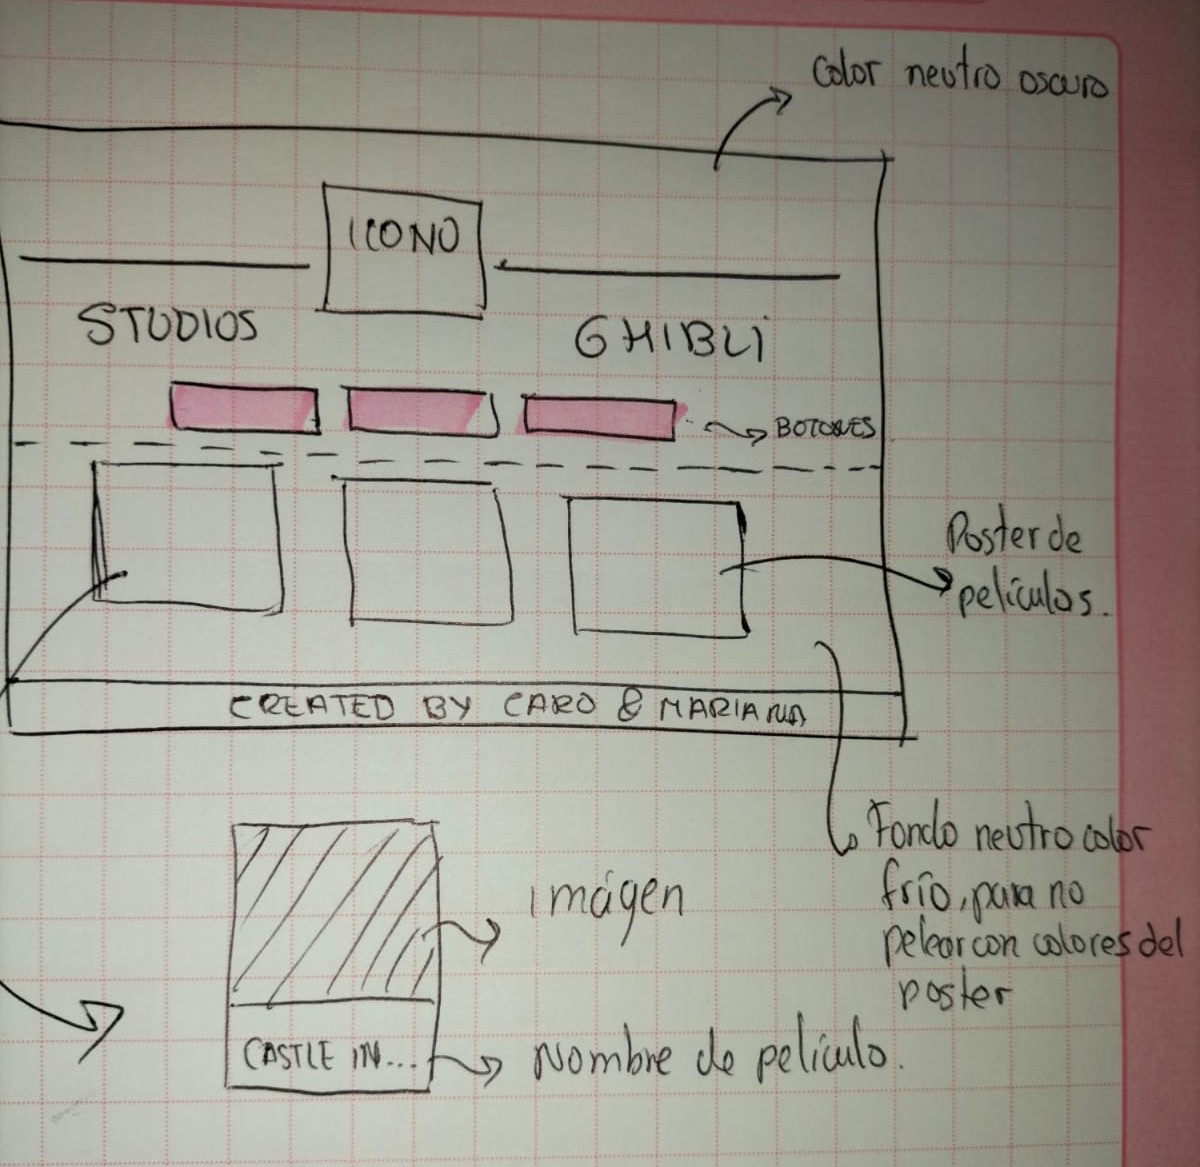 Color neutro oscuro
ICONO
STUDIOS
GHIBLI
BOTONES
Poster de
películas.
CREATED BY CARO & MARIANA
Fondo neutro color
frío, para no
pelear con colores del
poster
imágen
CASTLE IN...
Nombre de película.